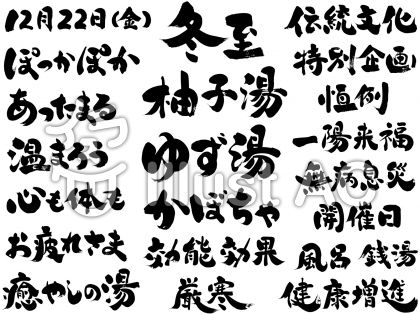 12月22日(金)
ぽっかぽか
あったまる
温まろう
心も体も
お疲れさま
癒やしの湯
冬至
柚子湯
ゆず湯
かぼちゃ
効能 効果
厳寒
伝統文化
特別企画
恒例
一陽来福
無病息災
開催日
風呂 銭湯
健康増進
illust AC